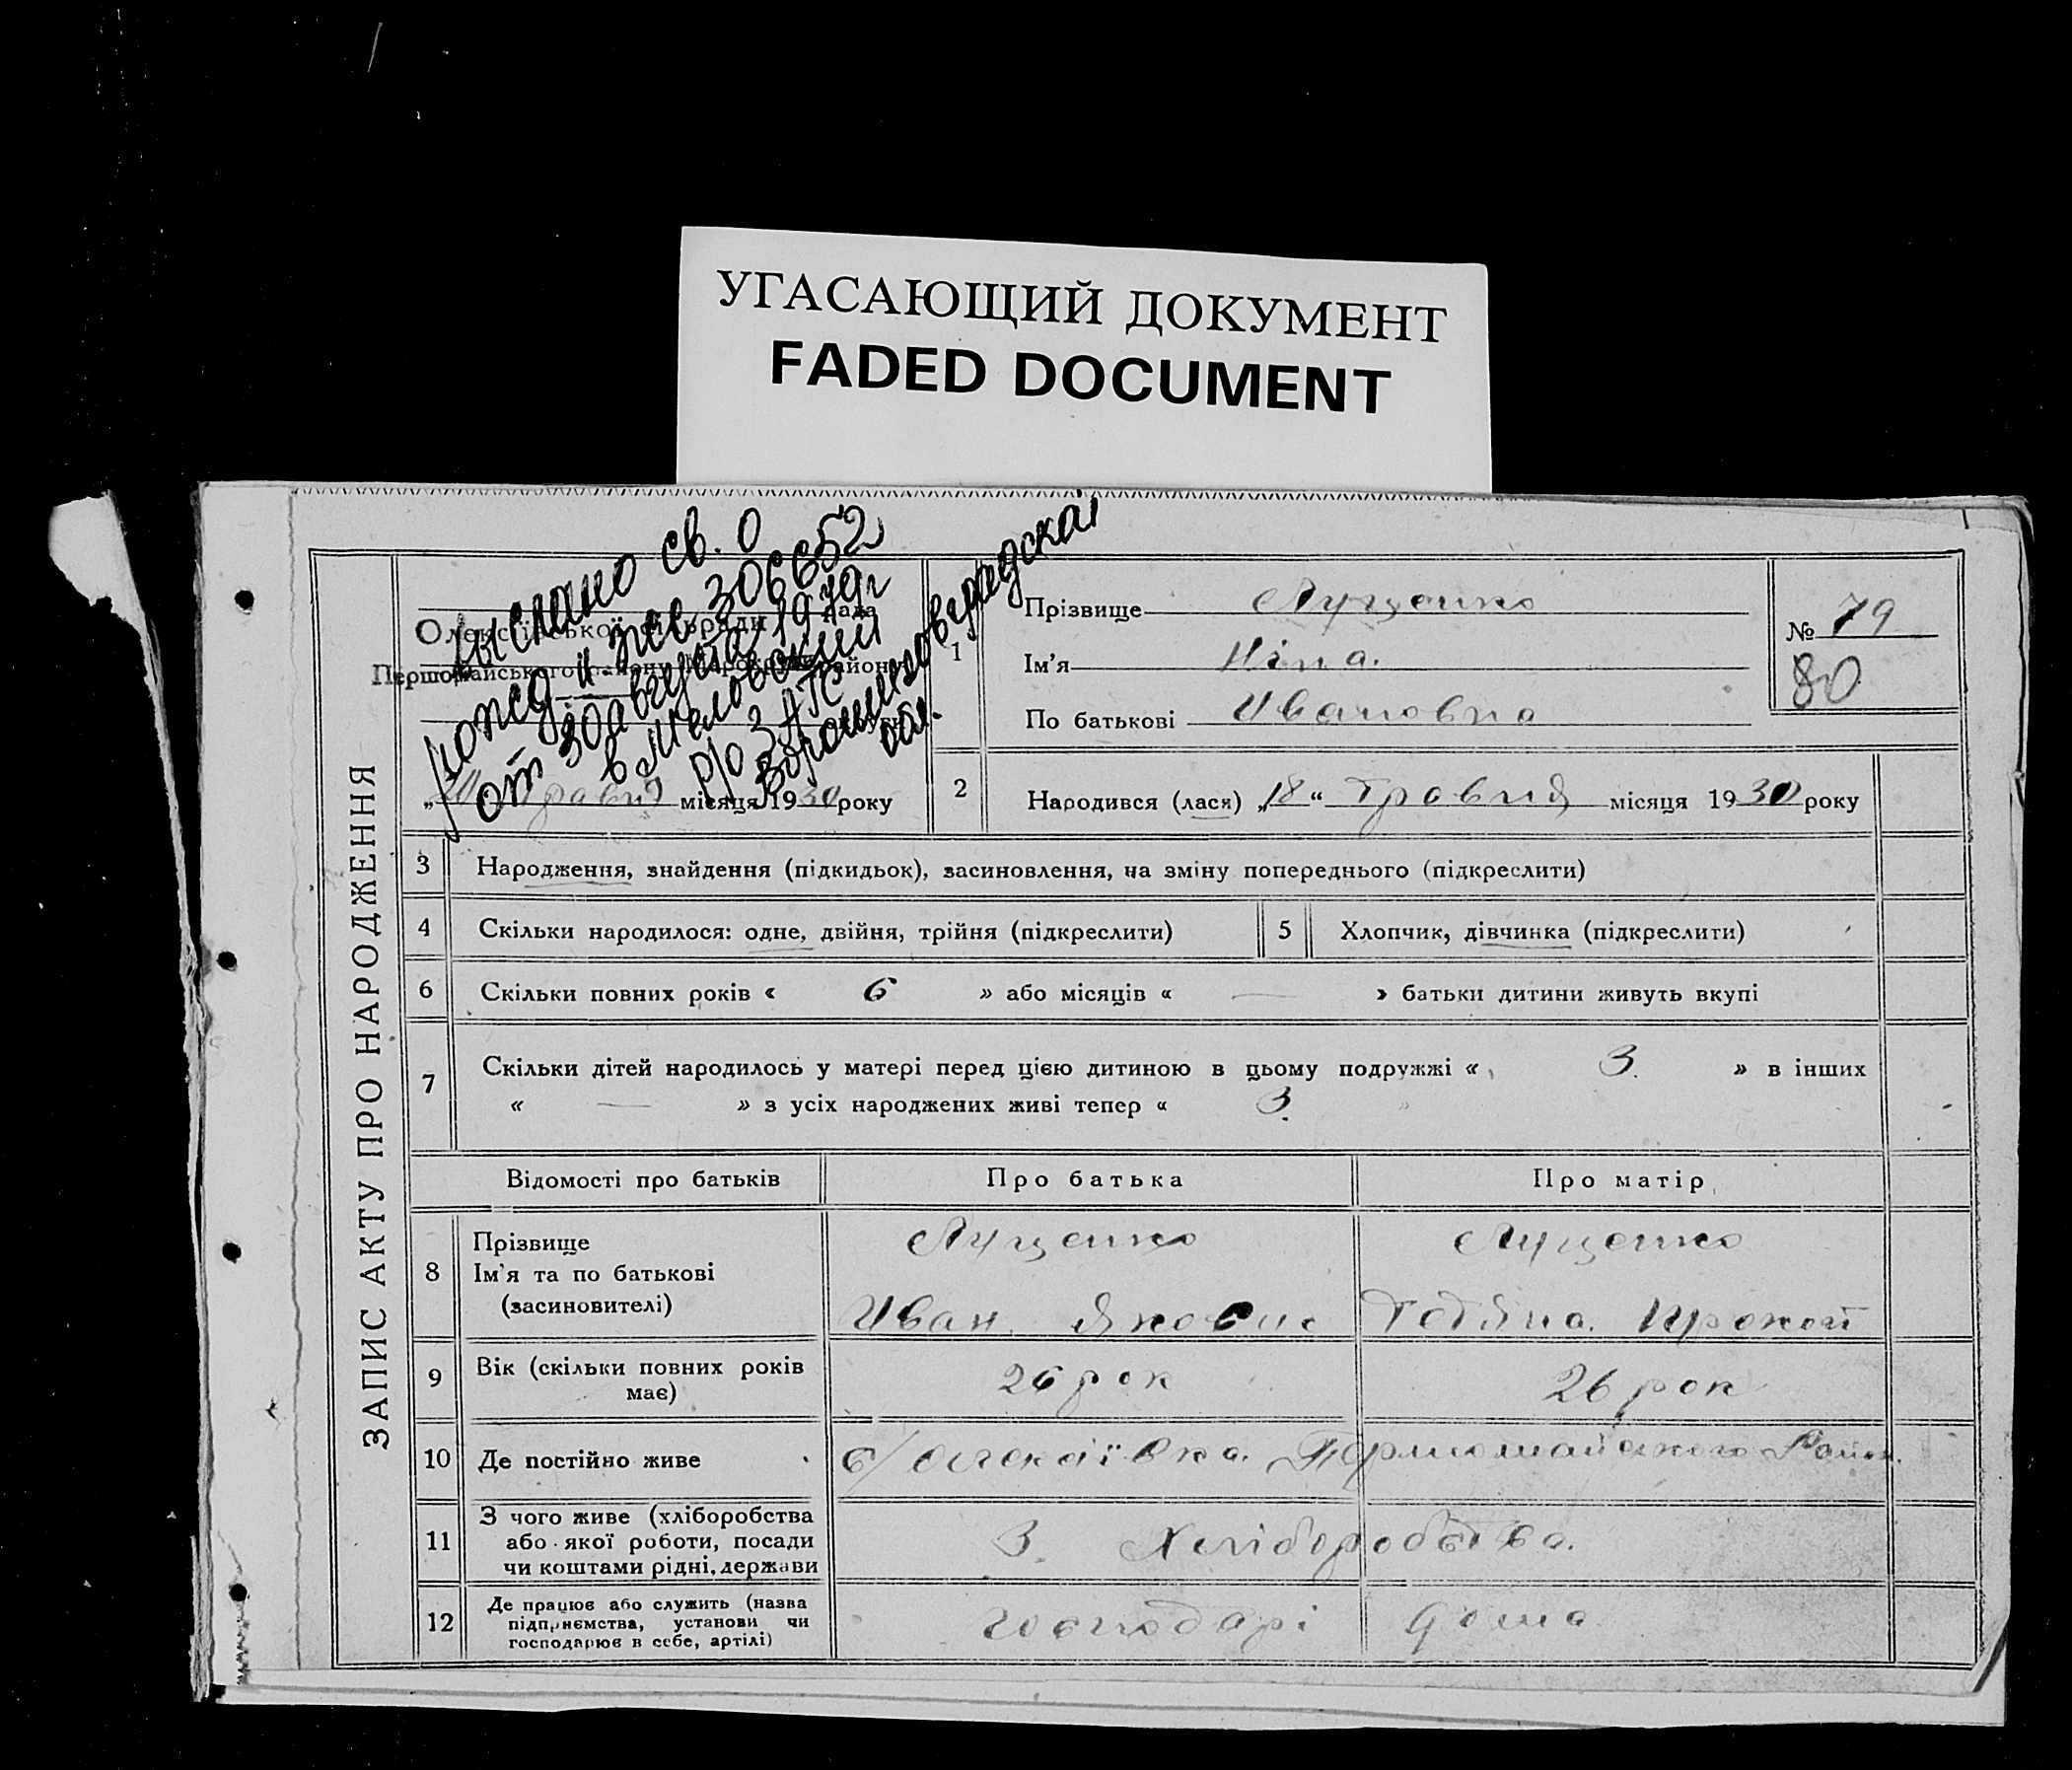 УГАСАЮЩИЙ ДОКУМЕНТ
FADED DOCUMENT
ЗАПИС АКТУ ПРО НАРОДЖЕННЯ
Выслано св. о
рожд. II-ЭК 306652
от 30 августа 1979г
в Меловский
р/о ЗАГС
Ворошиловградской
обл.
Олексіївської сільради
Першомайського району
„20 травня місяця 1930 року
1
Прізвище Лущенко
Ім'я Ніна.
По батькові Ивановна
№ 79
80
2
Народився (лася) „18“ Травня місяця 1930 року
3 Народження, знайдення (підкидьок), засиновлення, на зміну попереднього (підкреслити)
4 Скільки народилося: одне, двійня, трійня (підкреслити) 5 Хлопчик, дівчинка (підкреслити)
6 Скільки повних років « 6 » або місяців « — » батьки дитини живуть вкупі
7 Скільки дітей народилось у матері перед цією дитиною в цьому подружжі « 3. » в інших
« — » з усіх народжених живі тепер « 3.
Відомості про батьків Про батька Про матір
8 Прізвище Лущенко Лущенко
Ім'я та по батькові
(засиновителі) Иван Якович Татяна. Прокоп
9 Вік (скільки повних років має) 26 рок 26 рок
10 Де постійно живе с/ Олекаївка. Першомайського Район.
11 З чого живе (хліборобства
або якої роботи, посади
чи коштами рідні, держави З. Хліборобства.
12 Де працює або служить (назва
підприємства, установи чи
господарює в себе, артілі) господарі дома